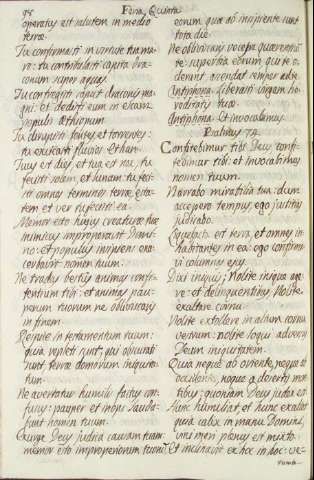 98 Feria, Quinta
operatus est salutem in medio
terræ.
Tu confirmasti in virtute tua ma-
re: tu contribulasti capita Dra-
conum in aquis.
Tu confregisti caput draconis ma-
gni: et dedisti eum in escam
populis æthiopum
Tu dirupisti fontes, et torrentes:
tu exicasti fluvios Ethan.
Tuus est dies, et tua est nox, tu
fecisti solem, et lunam tu feci-
sti omnes terminos terræ, esta-
tem et ver tu fecisti ea.
Memor esto hujus creaturæ tuæ
inimicus improperavit Domi-
no: et populus insipiens exa-
cerbavit nomen tuum.
Ne tradas bestiis animas confi-
tentium tibi: et animas pau-
perum tuorum ne obliviscaris
in finem.
Respice in testamentum tuum:
quia repleti sunt, qui obscurati
sunt terræ domorum iniquita-
tum.
Ne avertatur humilis factus con-
fusus: pauper et inops lauda-
bunt nomen tuum.
Exurge Deus judica causam tuam:
memor esto improperiorum tuorum,
eorum, quæ ab incipiente sunt
tota die.
Ne obliviscaris voces quærentium
te superbia eorum qui te o-
derunt ascendat semper
Antiphona. Liberasti virgam he-
reditatis tuæ.
Antiphona. Et invocabimus
Psalmus 74.
Confitebimur tibi Deus confi-
tebimur tibi: et invocabimus
nomen tuum.
Narrabo mirabilia tua: dum
accepero tempus, ego justitias
judicabo.
Liquefacta est terra, et omnes in-
habitantes in ea: ego confirma-
vi columnas ejus.
Dixi iniquis; Nolite inique age-
re: et delinquentibus, Nolite
exaltare cornu.
Nolite extollere in altum cornu
vestrum: nolite loqui adversus
Deum iniquitatem.
Quia neque ab oriente, neque ab
occidente, neque a desertis mon-
tibus: quoniam Deus judex est.
Hunc humiliat, et hunc exaltat
quia calix in manu Domini,
vini meri plenus est mixto.
Et inclinavit ex hoc in hoc: ve-